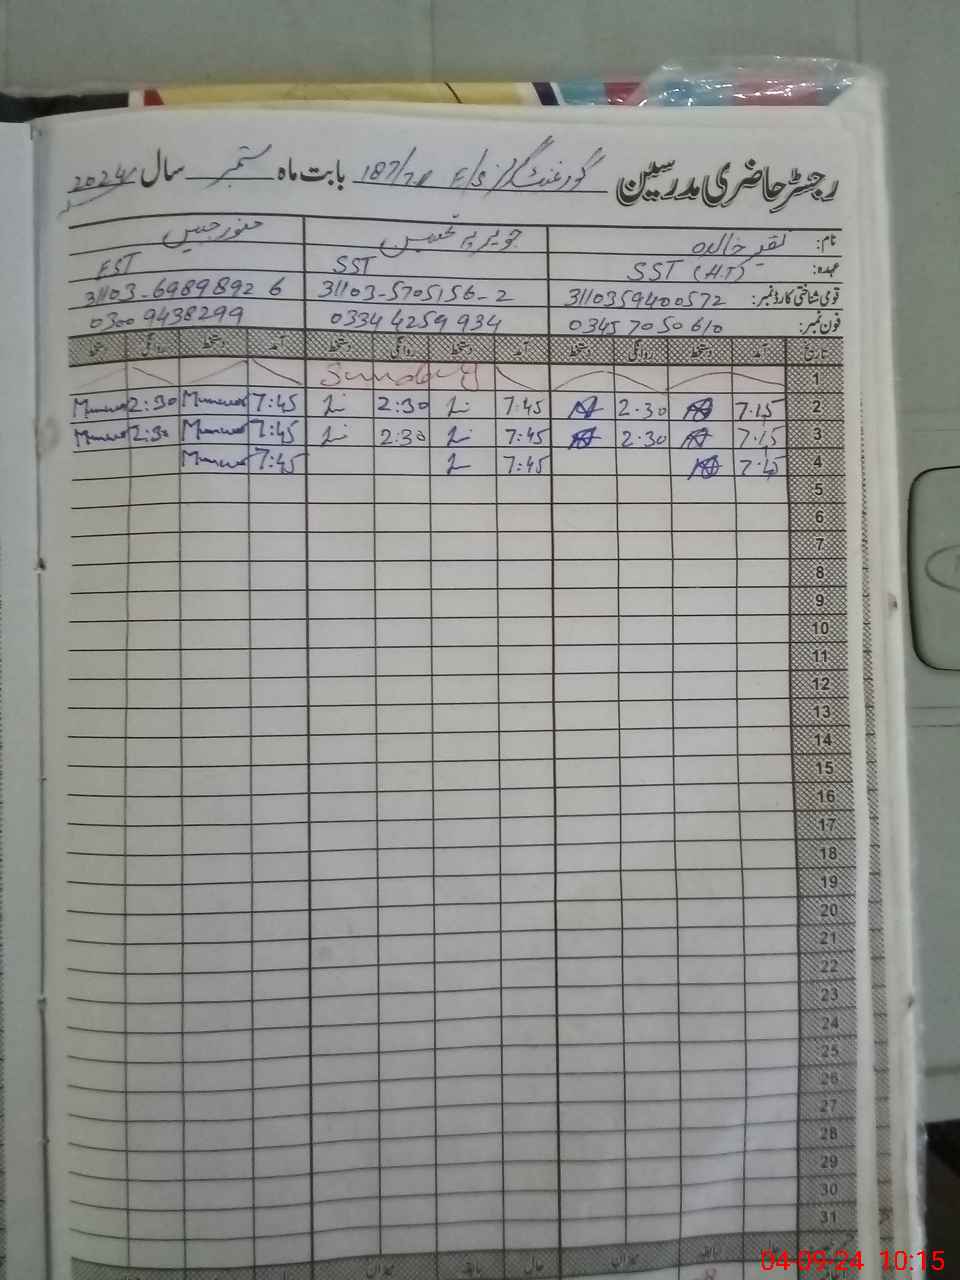 رجسٹر حاضری مدرسین گورنمنٹ گرلز E/S 187/7R بابت ماہ ستمبر سال 2024
نام: خالدہ جویریہ تحسین منور جبیں
عہدہ: SST (H.T) SST EST
قومی شناختی کارڈ نمبر: 3110359400572 31103-5705156-2 31103-6989892 6
فون نمبر: 0345 7050610 0334 4259934 0300 9438299
تاریخ آمد دستخط روانگی دستخط آمد دستخط روانگی دستخط آمد دستخط روانگی دستخط
1 Sunday
2 7.15 2.30 7:45 2:30 7:45 Munawar 2:30 Munawar
3 7.15 2.30 7:45 2:30 7:45 Munawar 2:30 Munawar
4 7.45 7:45 7:45 Munawar
5
6
7
8
9
10
11
12
13
14
15
16
17
18
19
20
21
22
23
24
25
26
27
28
29
30
31
04-09-24 10:15